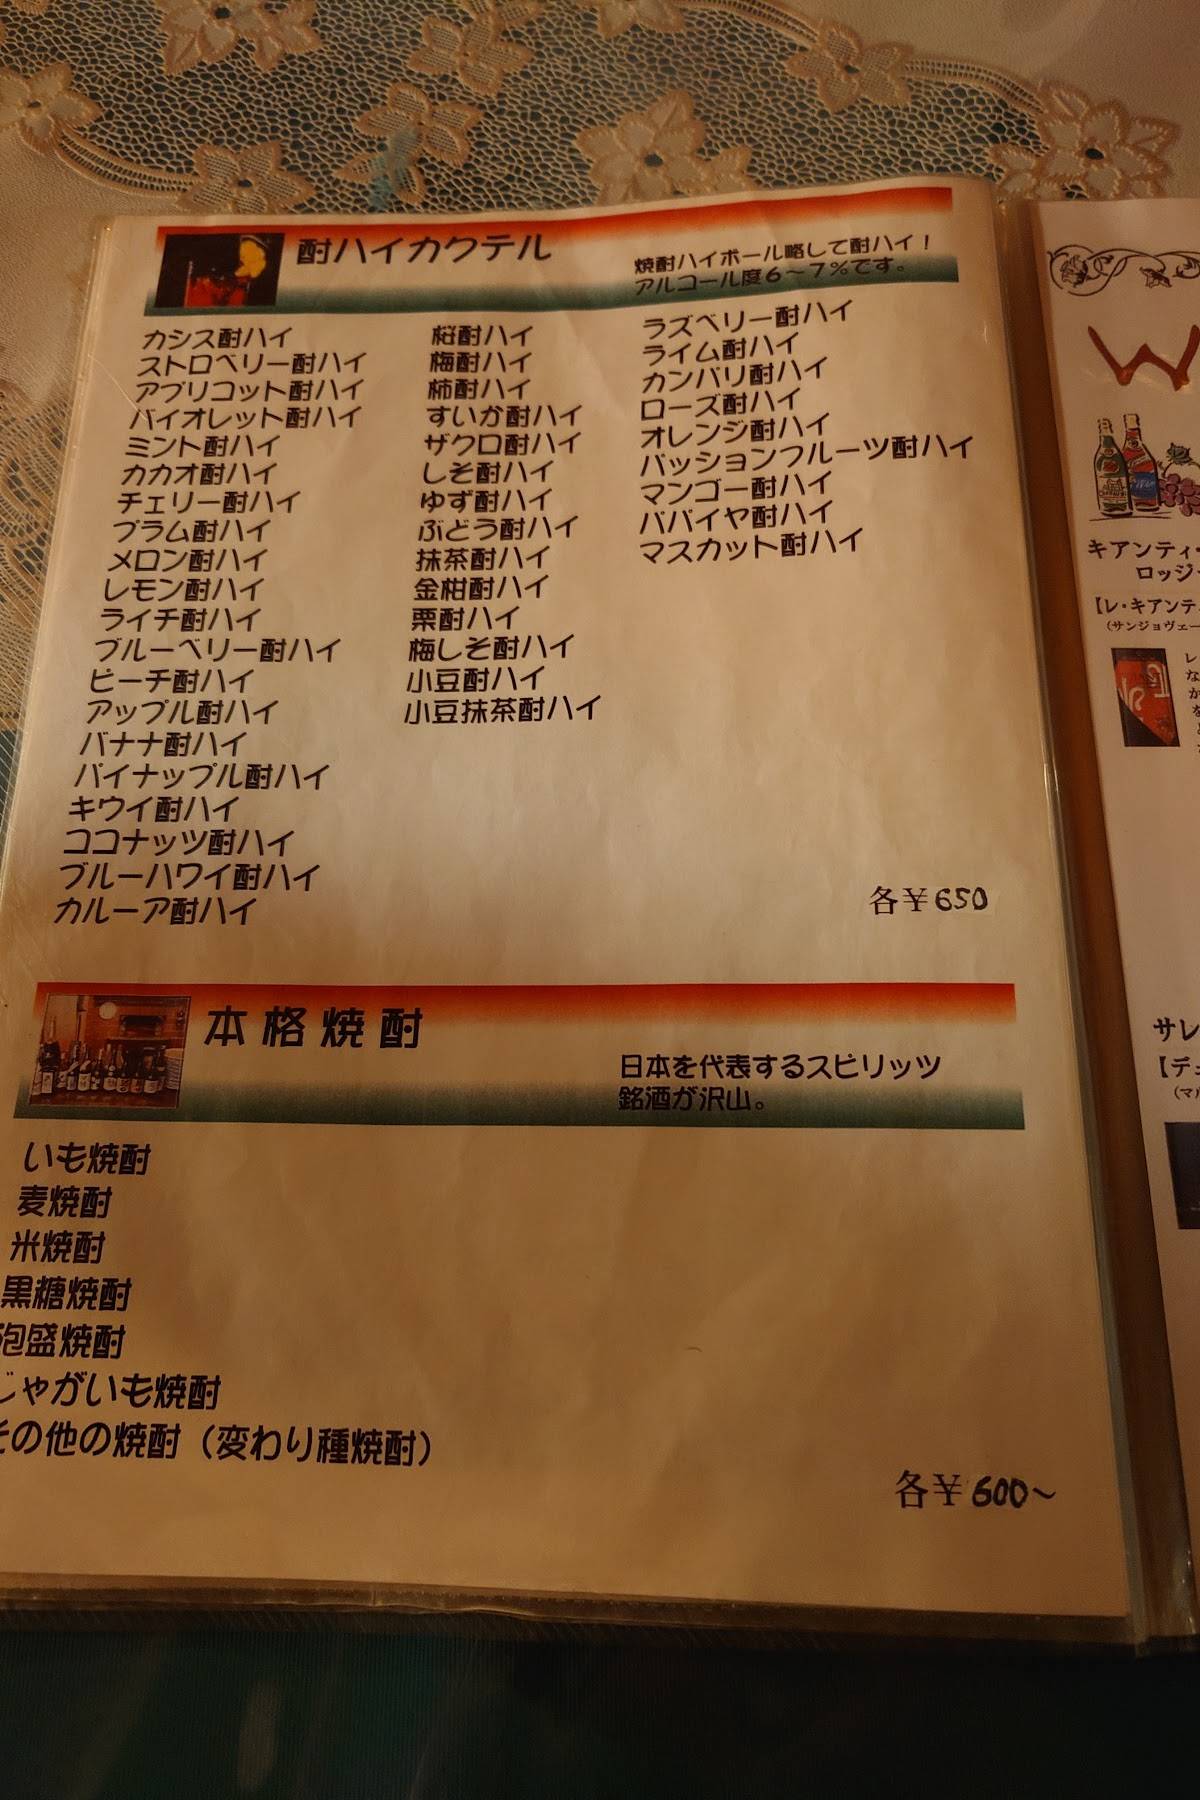 酎ハイカクテル
焼酎ハイボール略して酎ハイ！
アルコール度6～7%です。
カシス酎ハイ
ストロベリー酎ハイ
アプリコット酎ハイ
バイオレット酎ハイ
ミント酎ハイ
カカオ酎ハイ
チェリー酎ハイ
プラム酎ハイ
メロン酎ハイ
レモン酎ハイ
ライチ酎ハイ
ブルーベリー酎ハイ
ピーチ酎ハイ
アップル酎ハイ
バナナ酎ハイ
パイナップル酎ハイ
キウイ酎ハイ
ココナッツ酎ハイ
ブルーハワイ酎ハイ
カルーア酎ハイ
桜酎ハイ
梅酎ハイ
柿酎ハイ
すいか酎ハイ
ザクロ酎ハイ
しそ酎ハイ
ゆず酎ハイ
ぶどう酎ハイ
抹茶酎ハイ
金柑酎ハイ
栗酎ハイ
梅しそ酎ハイ
小豆酎ハイ
小豆抹茶酎ハイ
ラズベリー酎ハイ
ライム酎ハイ
カンパリ酎ハイ
ローズ酎ハイ
オレンジ酎ハイ
パッションフルーツ酎ハイ
マンゴー酎ハイ
パパイヤ酎ハイ
マスカット酎ハイ
各￥650
本格焼酎
日本を代表するスピリッツ
銘酒が沢山。
いも焼酎
麦焼酎
米焼酎
黒糖焼酎
泡盛焼酎
じゃがいも焼酎
その他の焼酎（変わり種焼酎）
各￥600～
W
キアンティ・
ロッジ
【レ・キアンテ
（サンジョヴェー
サレ
【デュ
（マル